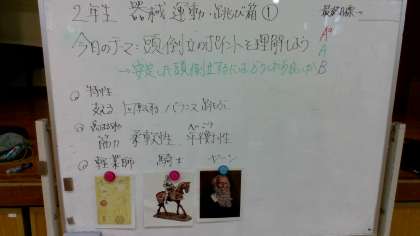 2年生 器械運動・跳び箱① 
今日のテーマ:頭倒立のポイントを理解しよう
A°
A
→安定した頭倒立をするにはどうすれば良いか B
特性
支える 回転する バランス 跳ぶ
筋力 柔軟性 平衡性
軽業師 騎士 ヤーン